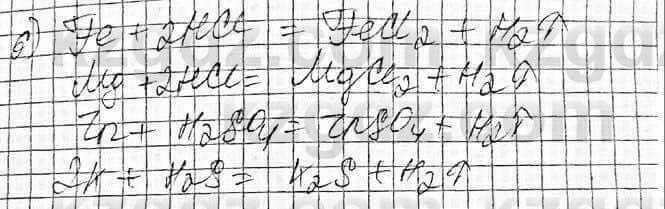 б) Fe + 2HCl = FeCl₂ + H₂↑
Mg + 2HCl = MgCl₂ + H₂↑
Zn + H₂SO₄ = ZnSO₄ + H₂↑
2K + H₂S = K₂S + H₂↑